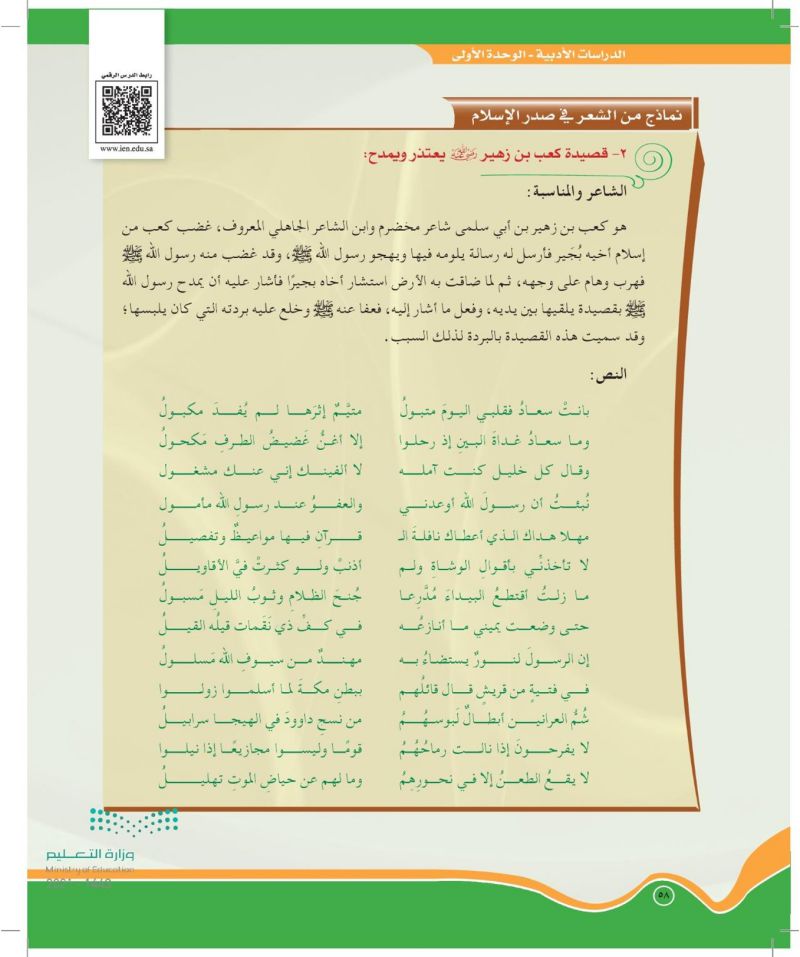 الدراسات الأدبية - الوحدة الأولى
رابط الدرس الرقمي
www.ien.edu.sa
نماذج من الشعر في صدر الإسلام
٢- قصيدة كعب بن زهير رضي الله عنه يعتذر ويمدح:
الشاعر والمناسبة:
هو كعب بن زهير بن أبي سلمى شاعر مخضرم وابن الشاعر الجاهلي المعروف، غضب كعب من
إسلام أخيه بُجَير فأرسل له رسالة يلومه فيها ويهجو رسول الله ﷺ، وقد غضب منه رسول الله ﷺ
فهرب وهام على وجهه، ثم لما ضاقت به الأرض استشار أخاه بجيرًا فأشار عليه أن يمدح رسول الله
ﷺ بقصيدة يلقيها بين يديه، وفعل ما أشار إليه، فعفا عنه ﷺ وخلع عليه بردته التي كان يلبسها؛
وقد سميت هذه القصيدة بالبردة لذلك السبب.
النص:
بانتْ سعادُ فقلبي اليومَ متبولُ متيَّمٌ إثرَها لم يُفدَ مكبولُ
وما سعادُ غداةَ البينِ إذ رحلوا إلا أغنُّ غَضيضُ الطرفِ مَكحولُ
وقال كل خليل كنت آمله لا ألفينك إني عنك مشغول
نُبئتُ أن رسولَ الله أوعدني والعفوُ عند رسولِ الله مأمول
مهلا هداك الذي أعطاك نافلةَ الـ قرآنِ فيها مواعيظٌ وتفصيلُ
لا تأخذنِّي بأقوالِ الوشاةِ ولم أذنبْ ولو كثرتْ فيَّ الأقاويلُ
ما زلتُ أقتطعُ البيداءَ مُدَّرِعا جُنحَ الظلامِ وثوبُ الليلِ مَسبولُ
حتى وضعت يميني ما أنازعُه في كفِّ ذي نَقَمات قيلُه القيلُ
إن الرسولَ لنورٌ يستضاءُ به مهندٌ من سيوفِ الله مَسلولُ
في فتيةٍ من قريشٍ قال قائلُهم ببطنِ مكةَ لما أسلموا زولوا
شُمُّ العرانينِ أبطالٌ لَبوسهُمُ من نسجِ داوودَ في الهيجا سرابيلُ
لا يفرحونَ إذا نالت رماحُهُمُ قومًا وليسوا مجازيعًا إذا نيلوا
لا يقعُ الطعنُ إلا في نحورِهِمُ وما لهم عن حياضِ الموتِ تهليلُ
وزارة التعليم
Ministry of Education
2021 - 1443
٥٨